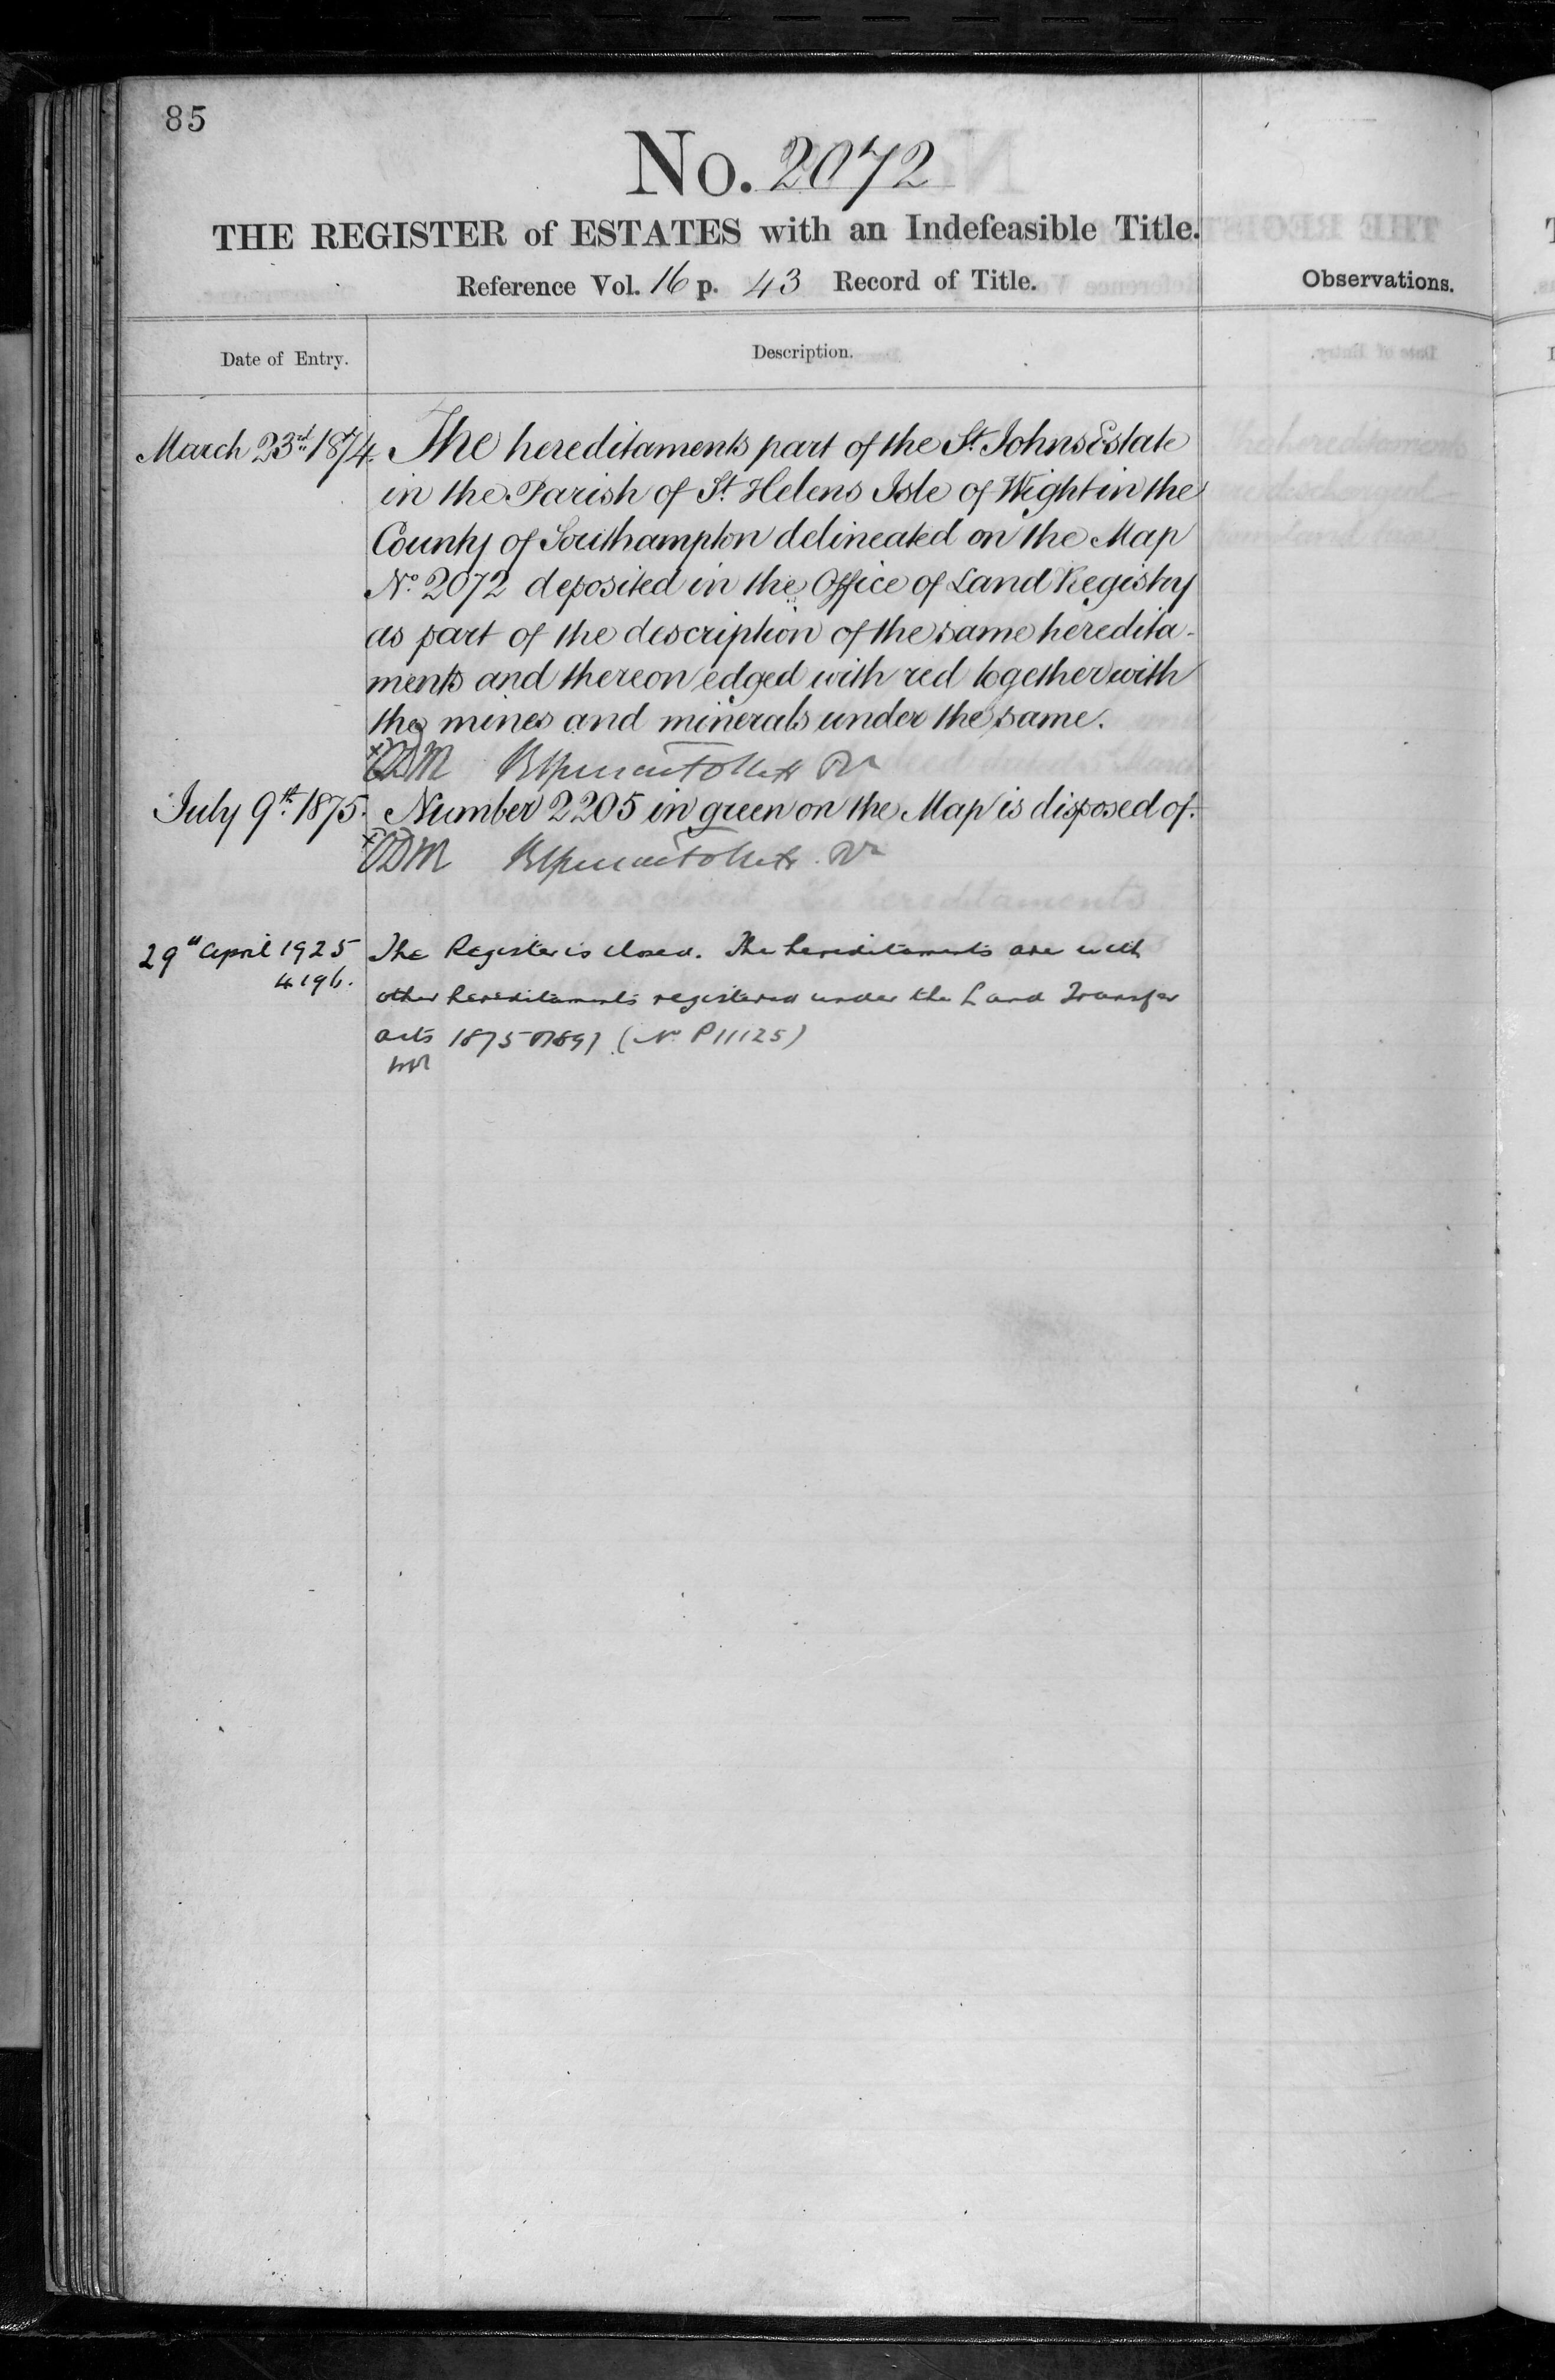 85
No. 2072
THE REGISTER of ESTATES with an Indefeasible Title.
Reference Vol. 16 p. 43 Record of Title.
Observations.
Date of Entry.
Description.
March 23rd 1874. The hereditaments part of the St. Johns Estate
in the Parish of St. Helens Isle of Wight in the
County of Southampton delineated on the Map
No. 2072 deposited in the Office of Land Registry
as part of the description of the same heredita-
ments and thereon edged with red together with
the mines and minerals under the same.
July 9th 1875. Number 2205 in green on the Map is disposed of.
29th April 1925 The Register is closed. The hereditaments are with
4196.
other hereditaments registered under the Land Transfer
Acts 1875 & 1897 (No P11125)